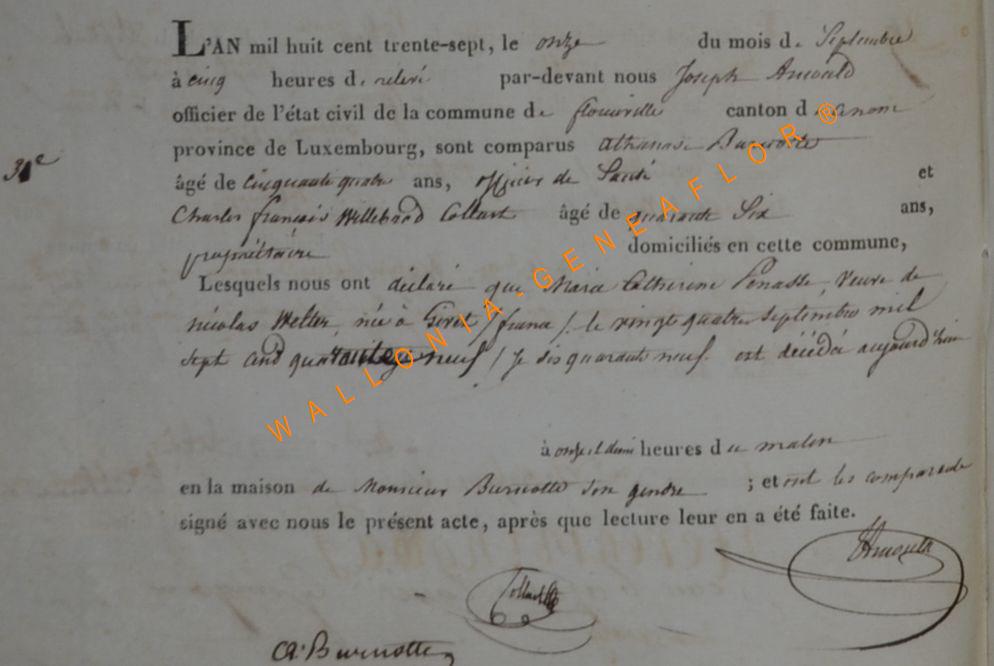 L'AN mil huit cent trente-sept, le onze du mois de Septembre
à cinq heures de relevé par-devant nous Joseph Arnould
officier de l'état civil de la commune de florenville canton d
province de Luxembourg, sont comparus athanase Burnotte
âgé de cinquante quatre ans, officier de Santé et
Charles françois Willebrod Collart âgé de quarante Six ans,
propriétaire domiciliés en cette commune,
Lesquels nous ont déclaré que Marie Catherine Ponasse, veuve de
nicolas Wetter, née à Givet / france /. le vingt quatre septembre mil
sept cend quarante neuf / je dis quarante neuf. est décédée aujourd'hui
à onze et demi heures du matin
en la maison de Monsieur Burnotte son gendre ; et ont les comparants
signé avec nous le présent acte, après que lecture leur en a été faite.
31e
Arnould
Collart
A. Burnotte
WALLONIA-GENEAFLOR®